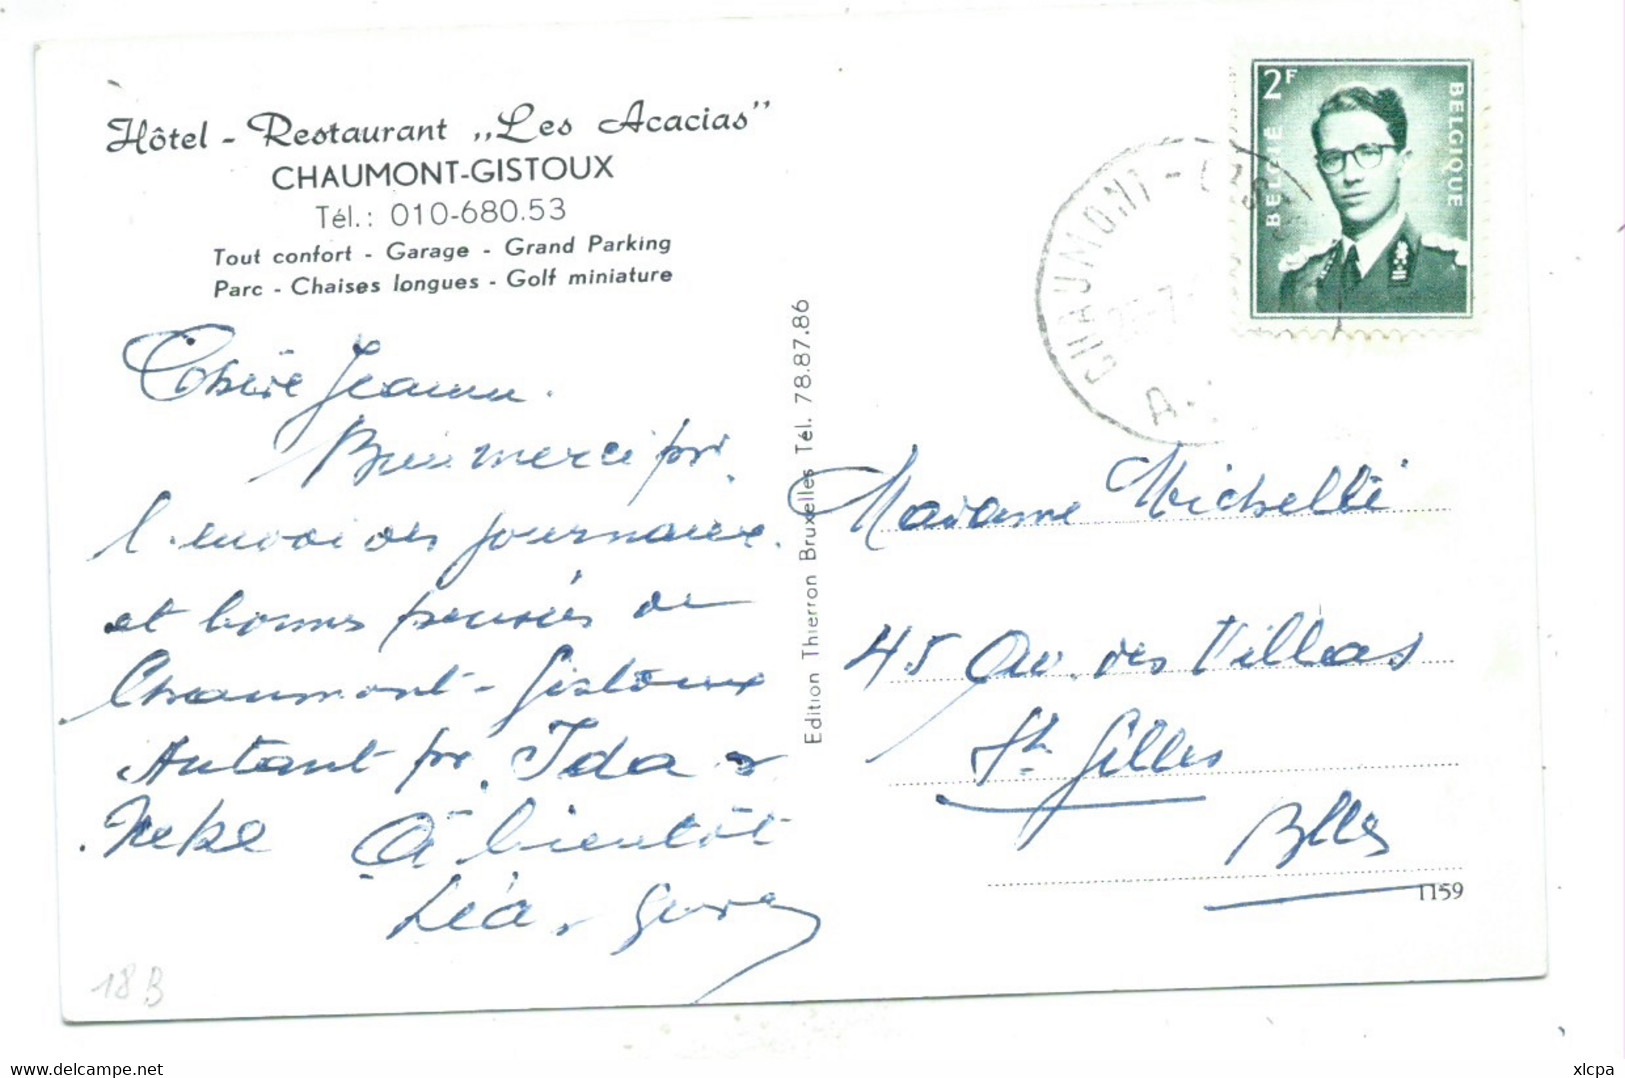 Hôtel - Restaurant „Les Acacias”
CHAUMONT-GISTOUX
Tél.: 010-680.53
Tout confort - Garage - Grand Parking
Parc - Chaises longues - Golf miniature
Chère Jeanne.
Bien merci pr.
l'envoi des journaux.
et bonnes pensées de
Chaumont-Gistoux
Autant pr. Ida &
Neke À bientôt
Léa &
18 B
Edition Thierron Bruxelles Tél. 78.87.86
2F
BELGIË
BELGIQUE
CHAUMONT-GIS
A
Madame Michellé
45 Av. des Villas
St. Gilles
Blles
1159
www.delcampe.net
xlcpa